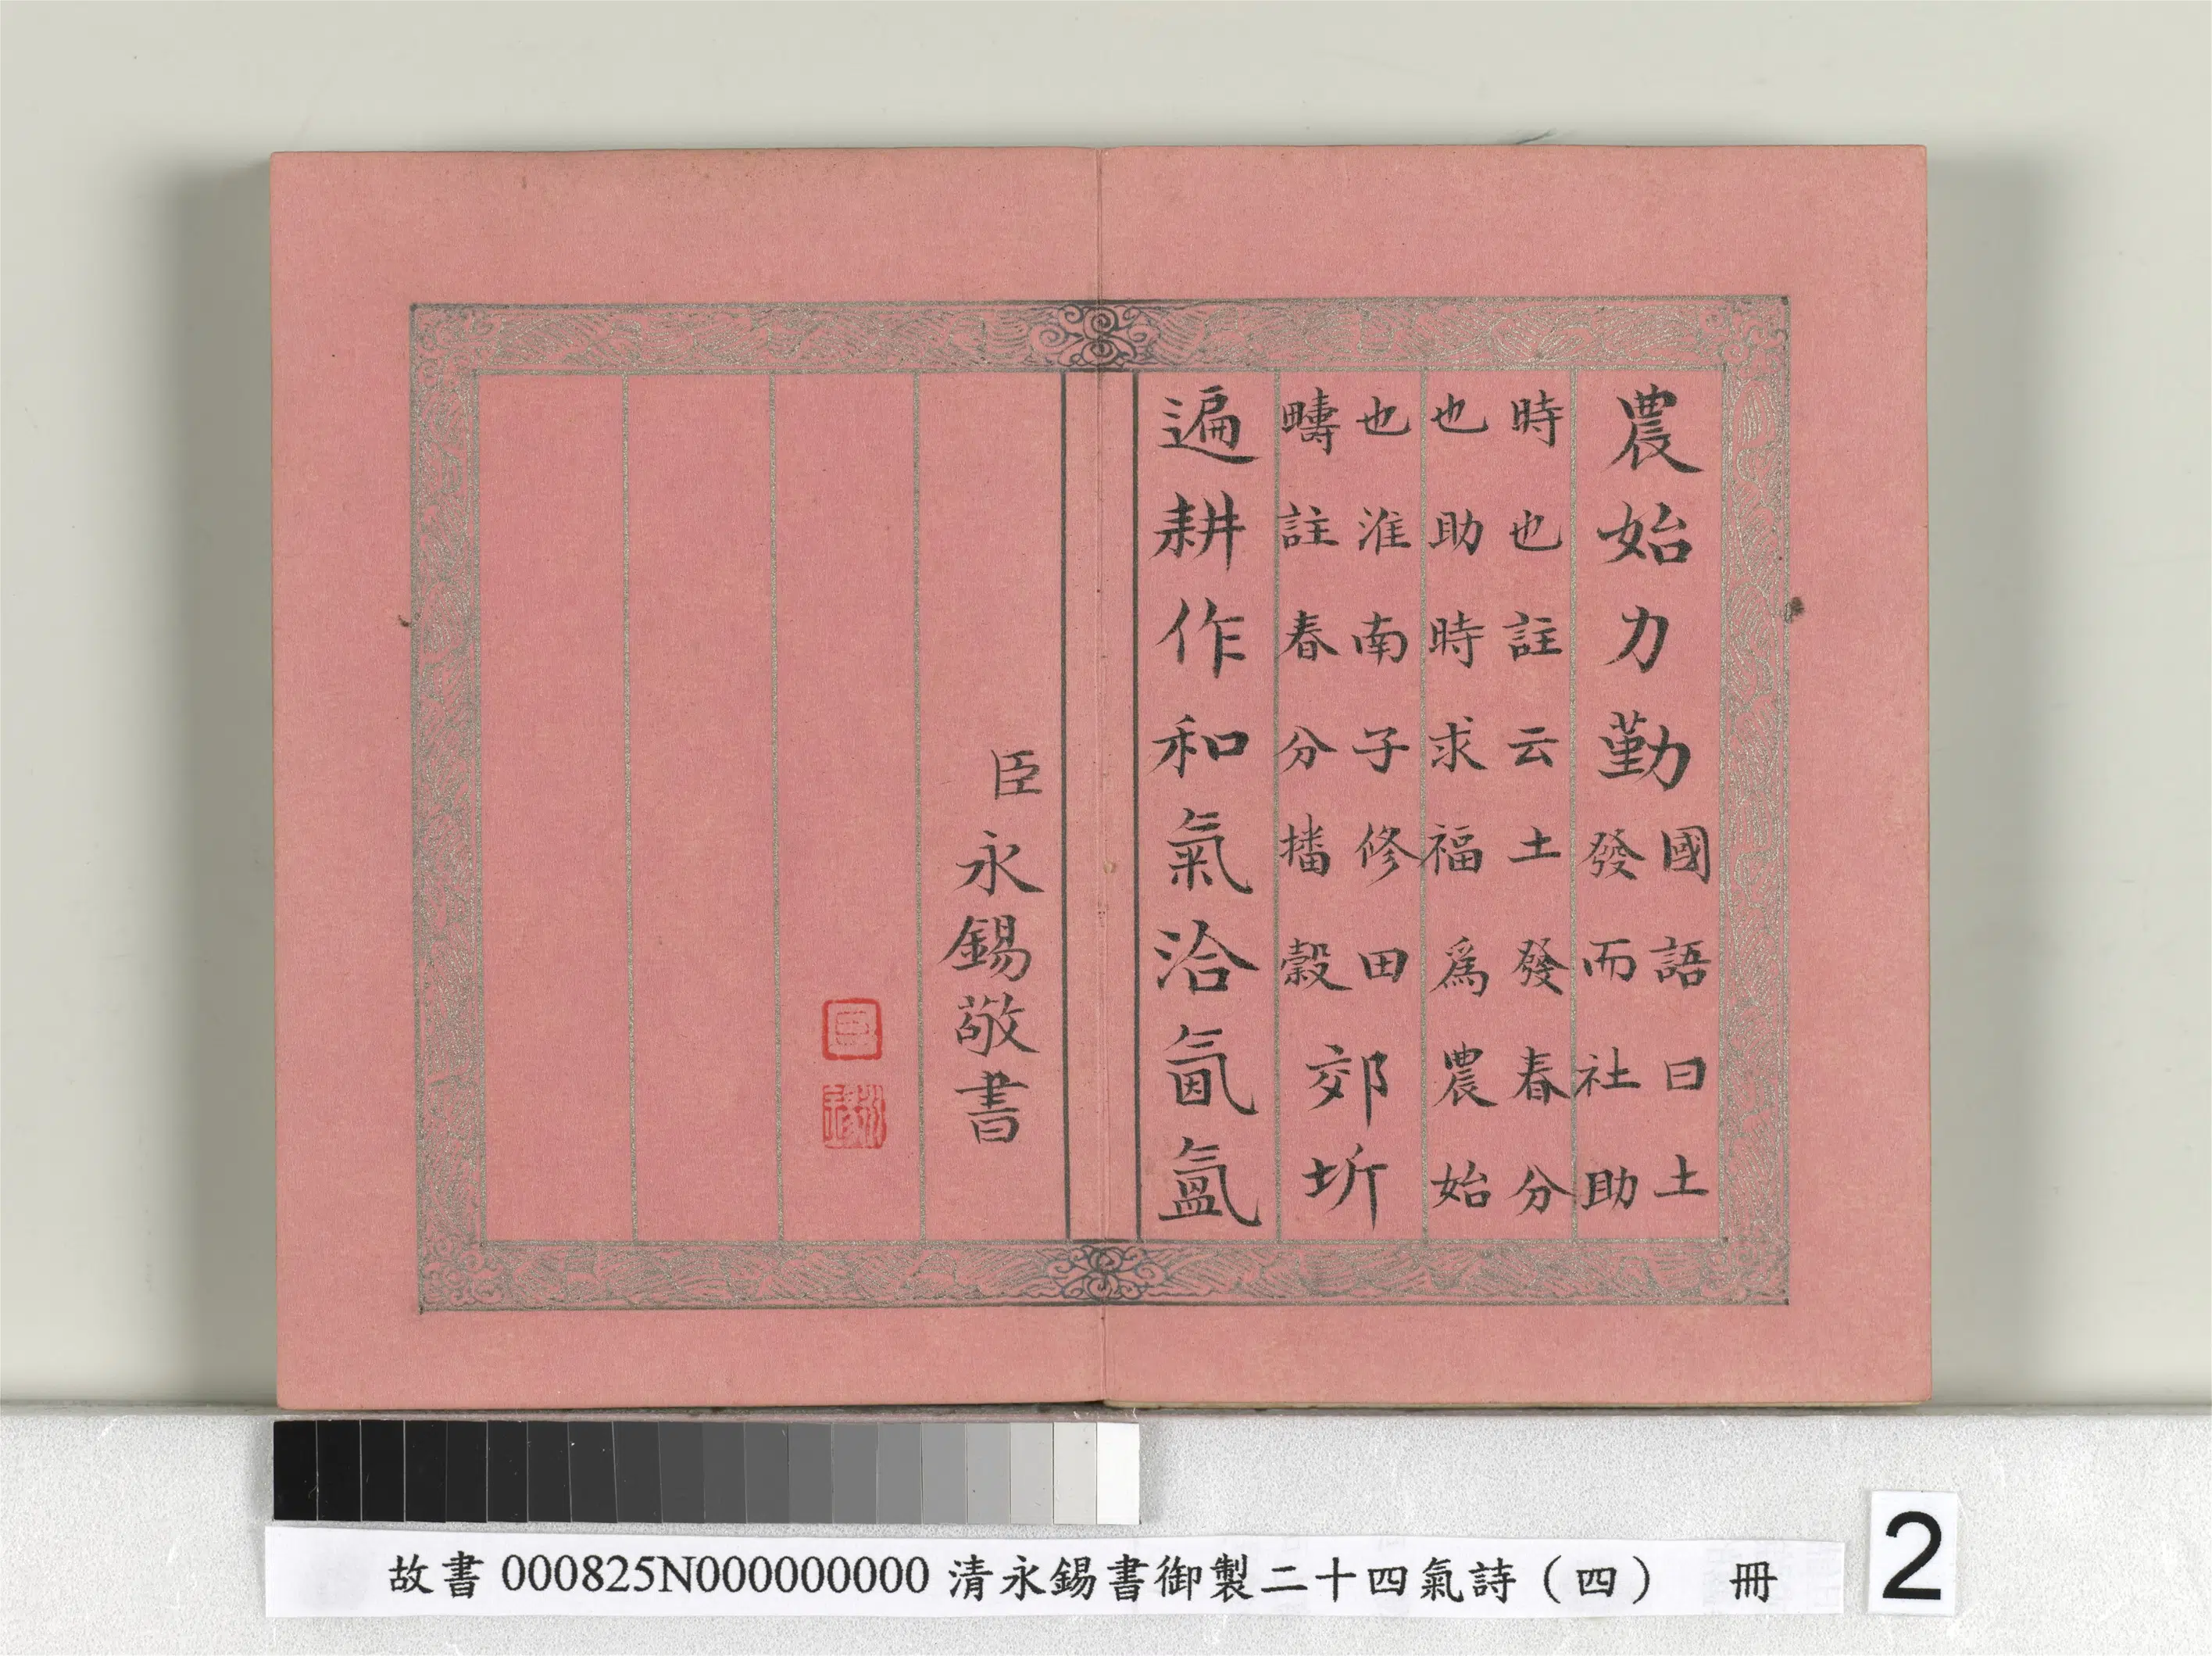 農始力勤國語曰土
發而社助
時也註云土發春分
也助時求福爲農始
也淮南子修田
疇註春分播穀
郊圻
遍耕作和氣洽氤氳
臣永錫敬書
故書 000825N000000000 清永錫書御製二十四氣詩（四） 冊
2